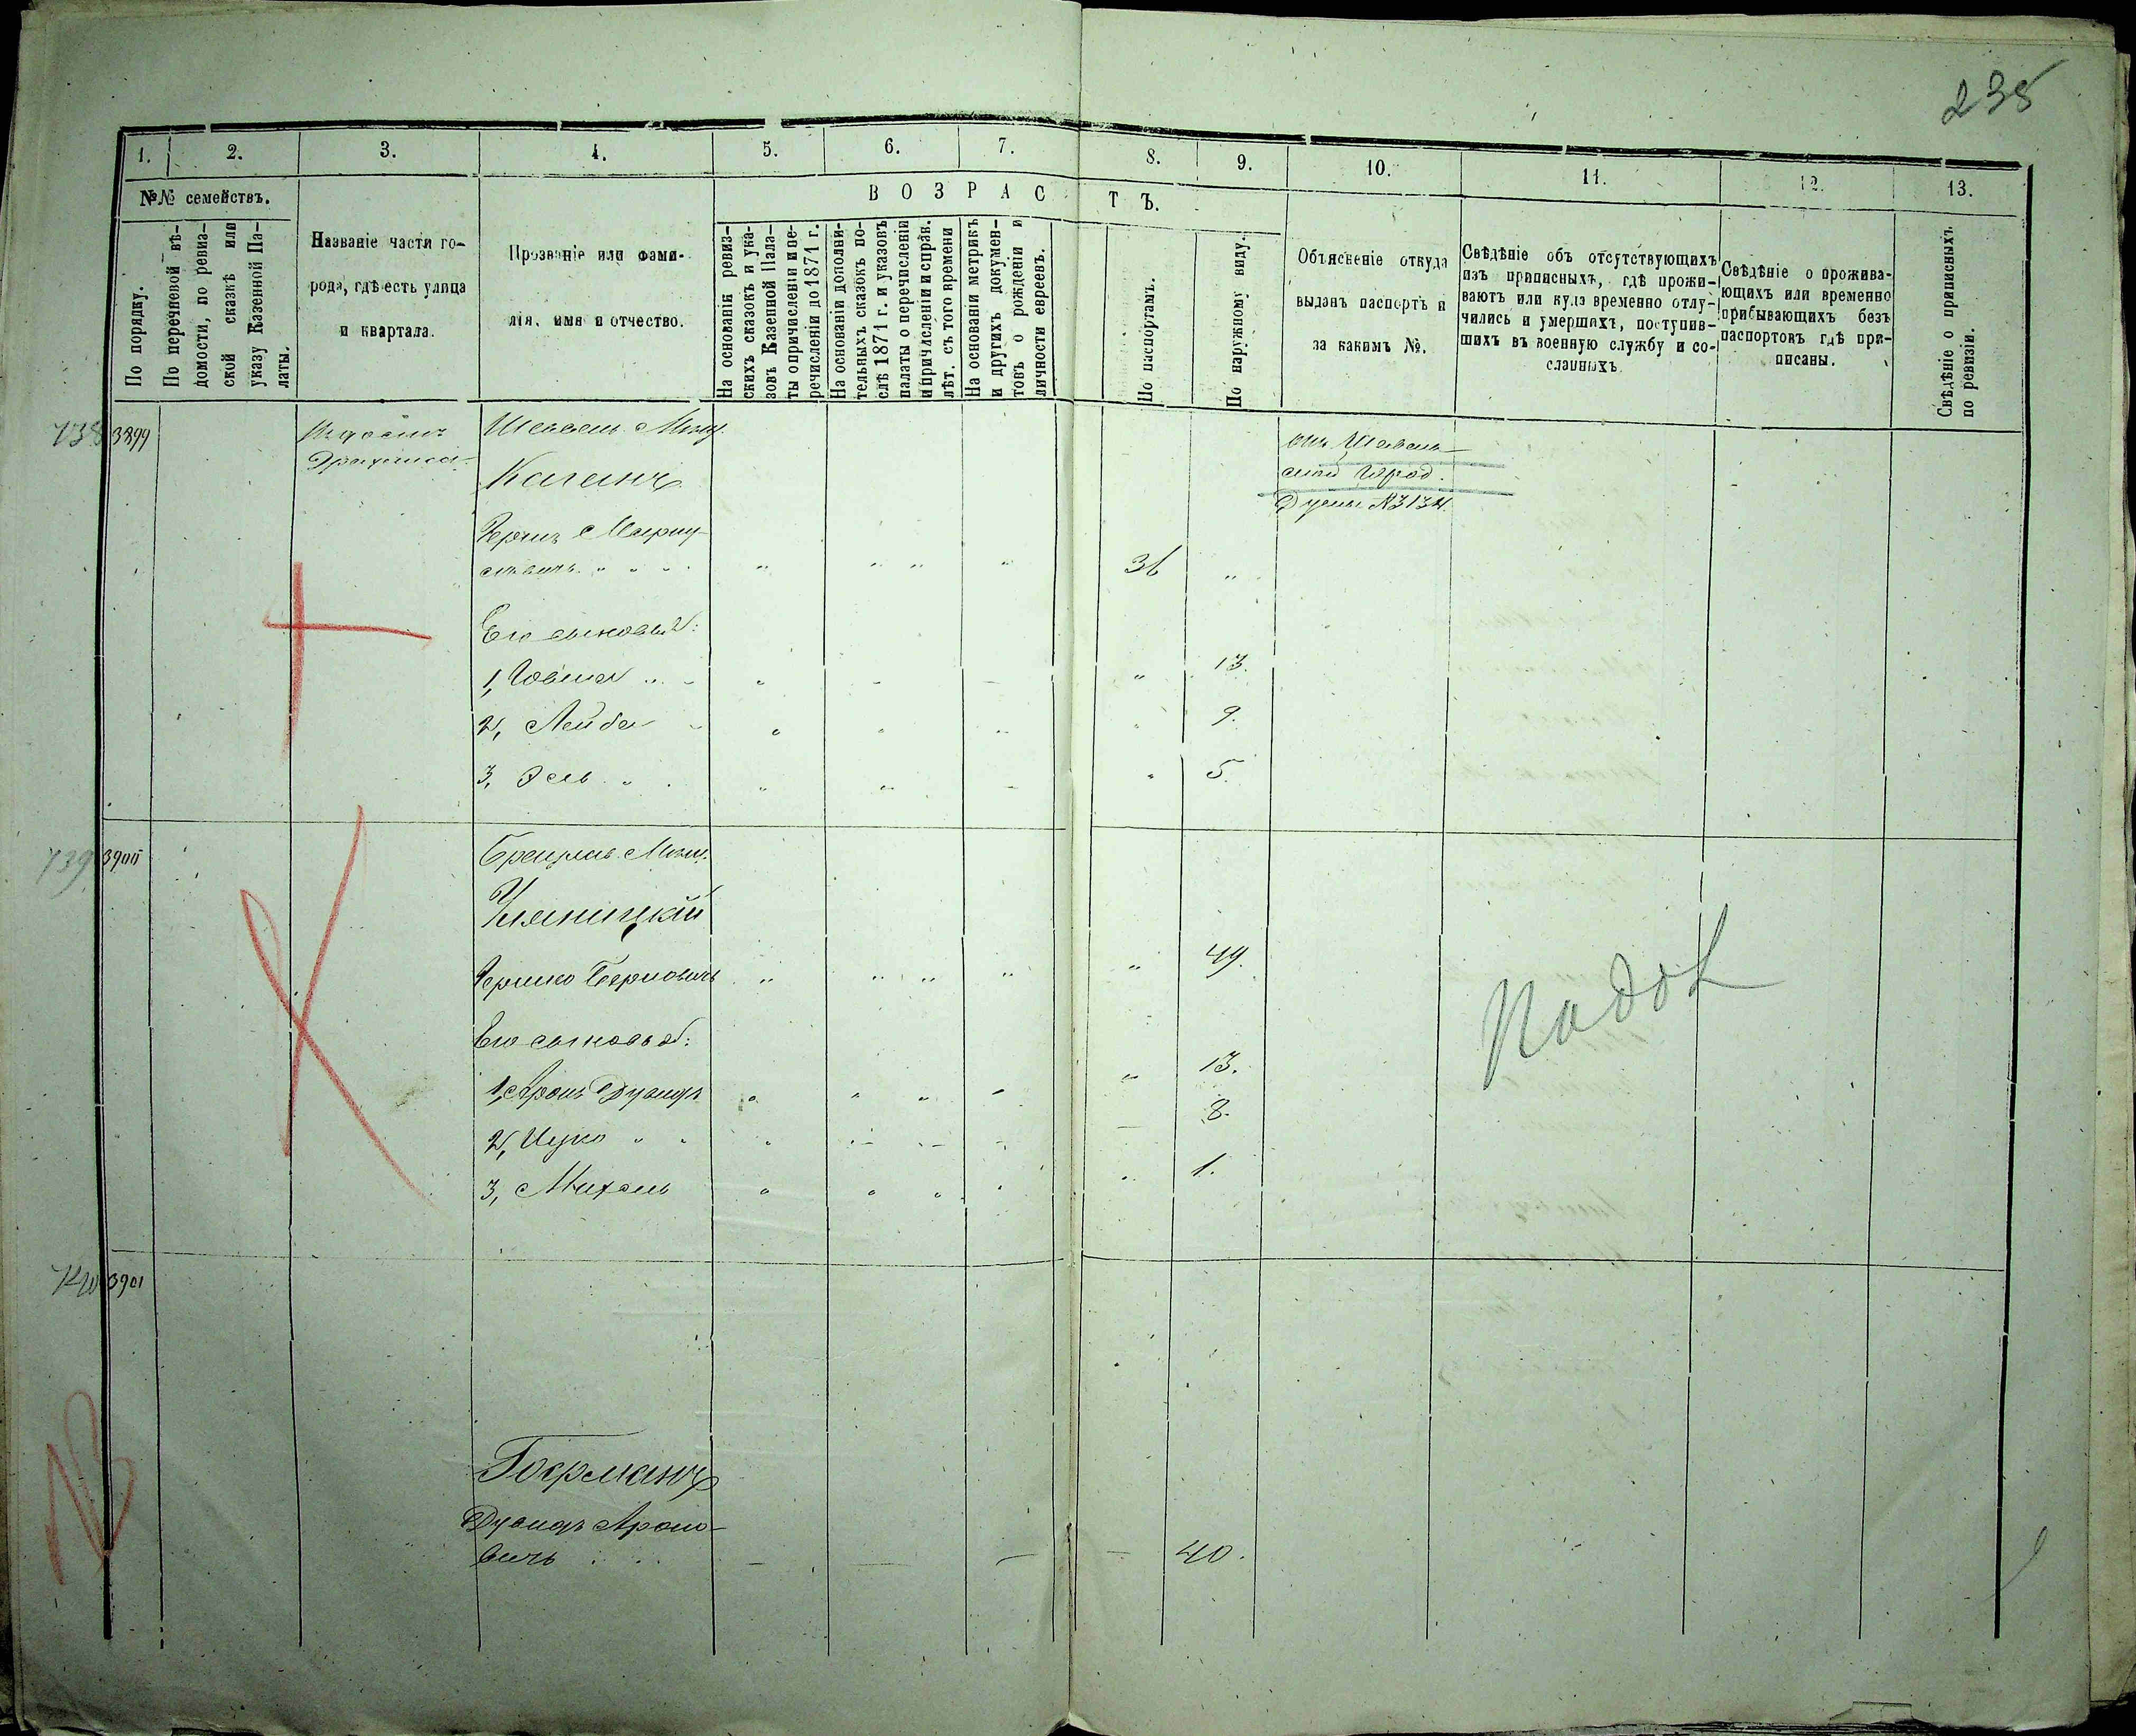 235
1. 2. 3. 4. 5. 6. 7. 8. 9. 10. 11. 12. 13.
№№ семействъ.
ВОЗРАСТЪ.
По порядку.
По перечневой вѣ-
домости, по ревиз-
ской сказкѣ или
указу Казенной Па-
латы.
Названіе части го-
рода, гдѣ есть улица
и квартала.
Прозваніе или фами-
лія, имя и отчество.
На основаніи ревиз-
скихъ сказокъ и ука-
зовъ Казенной Пала-
ты о причисленіи и пе-
речисленіи до 1871 г.
На основаніи дополни-
тельныхъ сказокъ по-
слѣ 1871 г. и указовъ
палаты о перечисленіи
и причисленіи и справ.
лѣт. съ того времени
На основаніи метрикъ
и другихъ докумен-
товъ о рожденіи и
личности евреевъ.
По паспортамъ.
По наружному виду.
Объясненіе откуда
выданъ паспортъ и
за какимъ №.
Свѣдѣніе объ отсутствующихъ
изъ приписныхъ, гдѣ прожи-
ваютъ или куда временно отлу-
чились и умершихъ, поступив-
шихъ въ военную службу и со-
сланныхъ
Свѣдѣніе о прожива-
ющихъ или временно
прибывающихъ безъ
паспортовъ гдѣ при-
писаны.
Свѣдѣніе о приписныхъ
по ревизіи.
738 3899
Шавель. Мѣщ.
Каганъ
36
Его сыновья:
1, 13.
2, Лейба 9.
3, 5.
Думы №3134.
739 3900
Мѣщ.
Гершко Берковичъ 49.
Его сыновья:
1, Аронъ Дувидъ 13.
2, Ицко 8.
3, Михель 1.
740 3901
Гофманъ
ДувидъАроно-
вичъ 40.